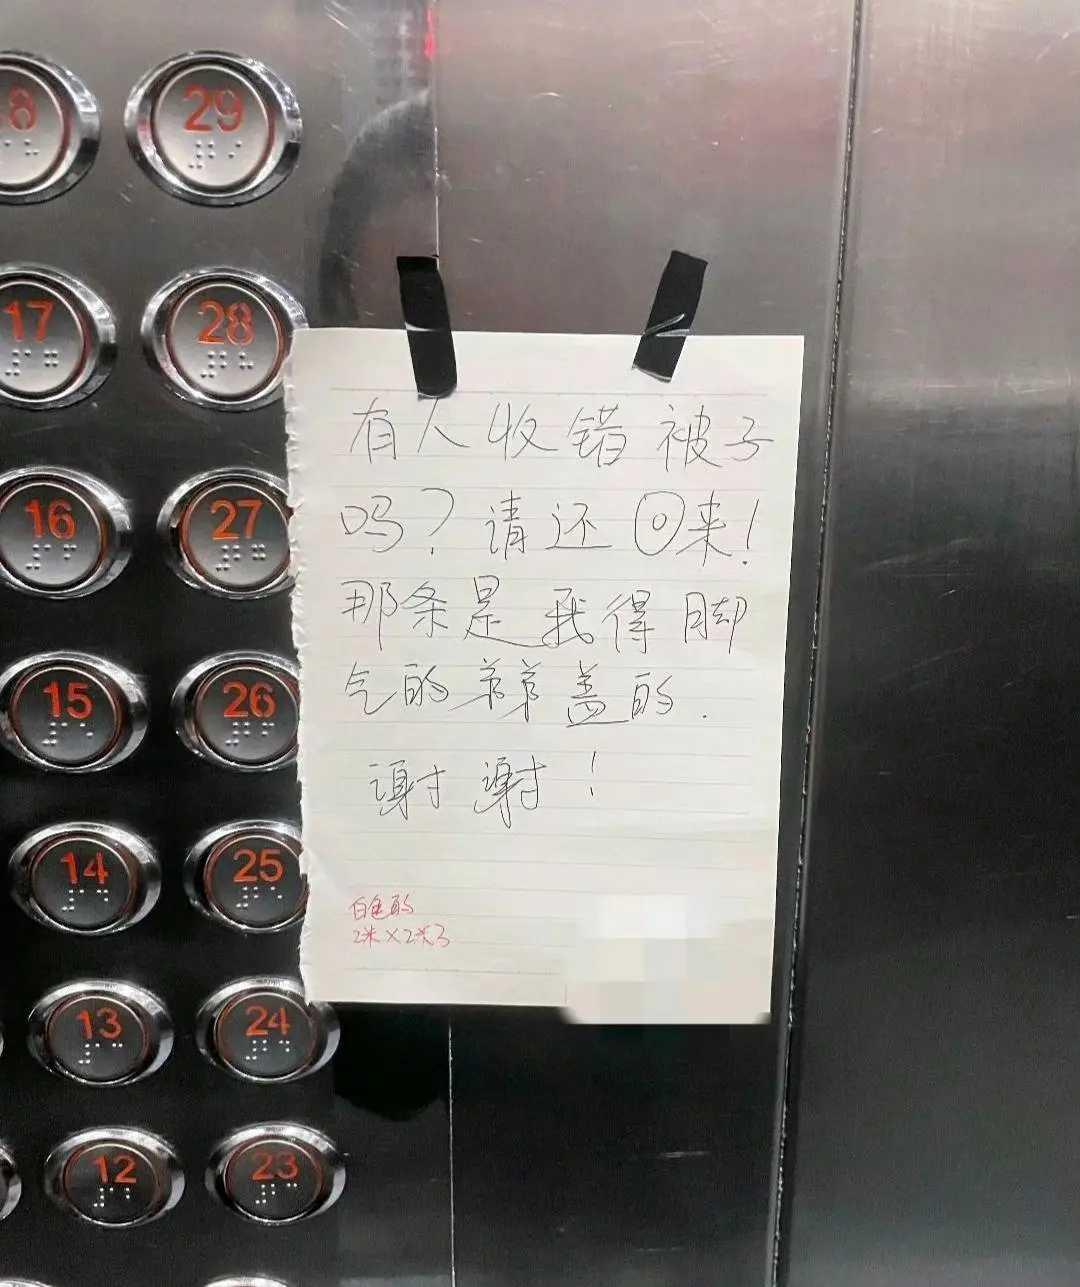 有人收错被子
吗？请还回来！
那条是我得脚
气的弟弟盖的.
谢谢！
白色的
2米×2米3
29
17
28
16
27
15
26
14
25
13
24
12
23